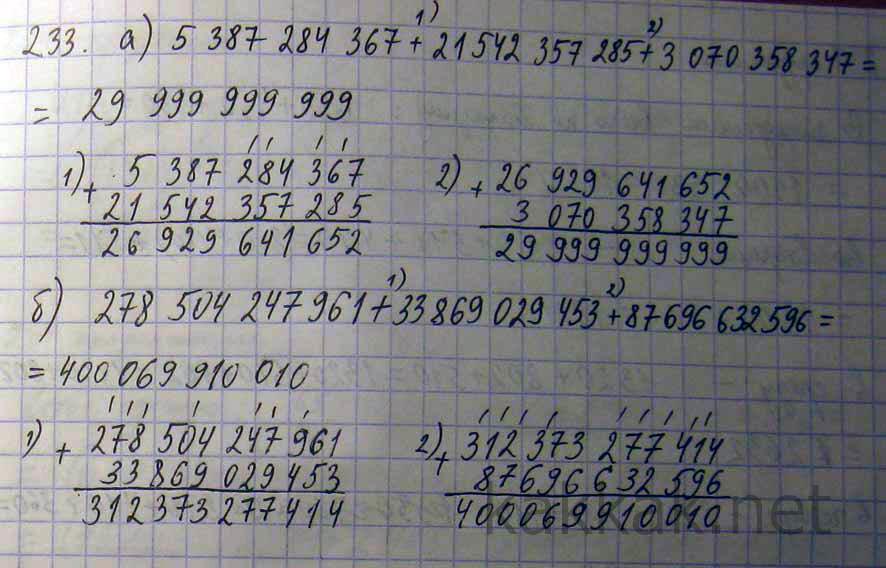 233. а) 5 387 284 367 + 21 542 357 285 + 3 070 358 347 =
= 29 999 999 999
1) + 5 387 284 367
21 542 357 285
26 929 641 652
2) + 26 929 641 652
3 070 358 347
29 999 999 999
б) 278 504 247 961 + 33 869 029 453 + 87 696 632 596 =
= 400 069 910 010
1) + 278 504 247 961
33 869 029 453
312 373 277 414
2) + 312 373 277 414
87 696 632 596
400 069 910 010